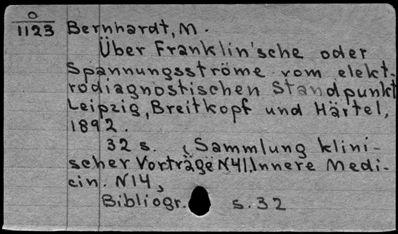 O
1123 Bernhardt, M.
Über Franklin'sche oder
Spannungsströme vom elekt-
rodiagnostischen Standpunkt
Leipzig, Breitkopf und Härtel,
1892.
32 s. (Sammlung klini-
scher Vorträge N41. Innere Medi-
cin. N14,
Bibliogr. s. 32